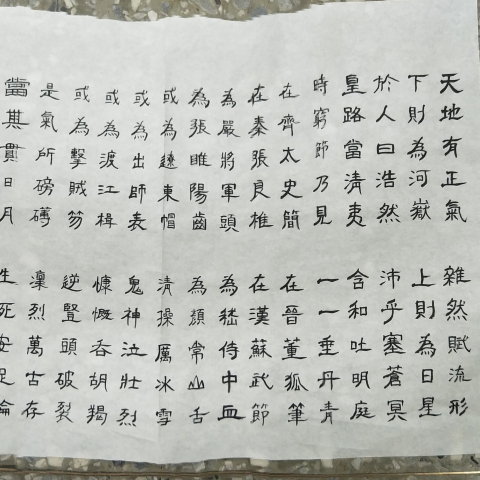 天地有正氣 雜然賦流形
下則為河嶽 上則為日星
於人曰浩然 沛乎塞蒼冥
皇路當清夷 含和吐明庭
時窮節乃見 一一垂丹青
在齊太史簡 在晉董狐筆
在秦張良椎 在漢蘇武節
為嚴將軍頭 為嵇侍中血
為張睢陽齒 為顏常山舌
或為遼東帽 清操厲冰雪
或為出師表 鬼神泣壯烈
或為渡江楫 慷慨吞胡羯
或為擊賊笏 逆豎頭破裂
是氣所磅礴 凜烈萬古存
當其貫日月 生死安足論